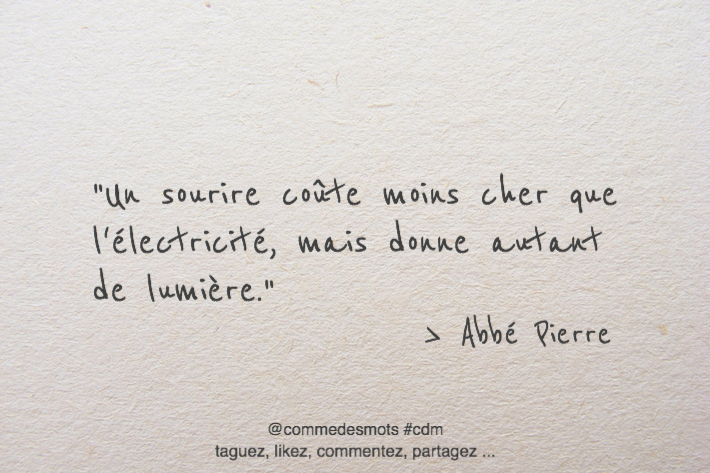 "Un sourire coûte moins cher que
l'électricité, mais donne autant
de lumière."
> Abbé Pierre
@commedesmots #cdm
taguez, likez, commentez, partagez ...